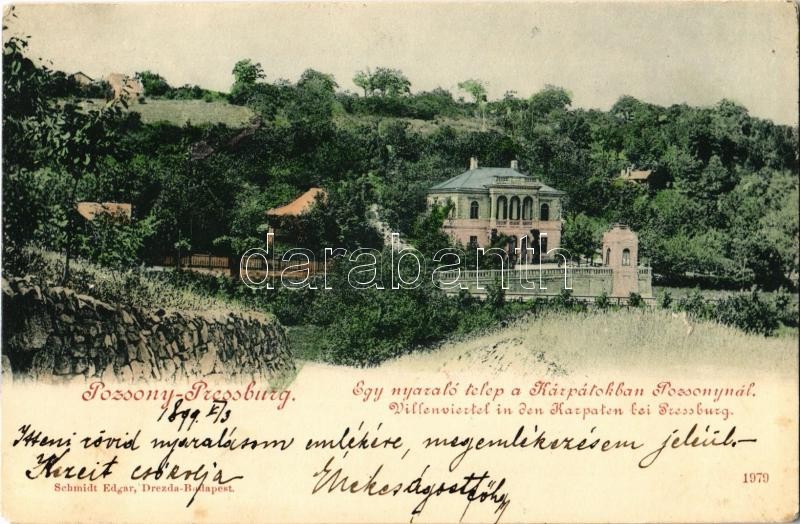 darabanth.com
Pozsony-Pressburg.
Egy nyaraló telep a Kárpátokban Pozsonynál.
Villenviertel in den Karpaten bei Pressburg.
1899
Itteni rövid nyaralásom emlékére, megemlékezésem jeléül.-
Kezeit csókolja
Schmidt Edgar, Drezda-Budapest.
1979